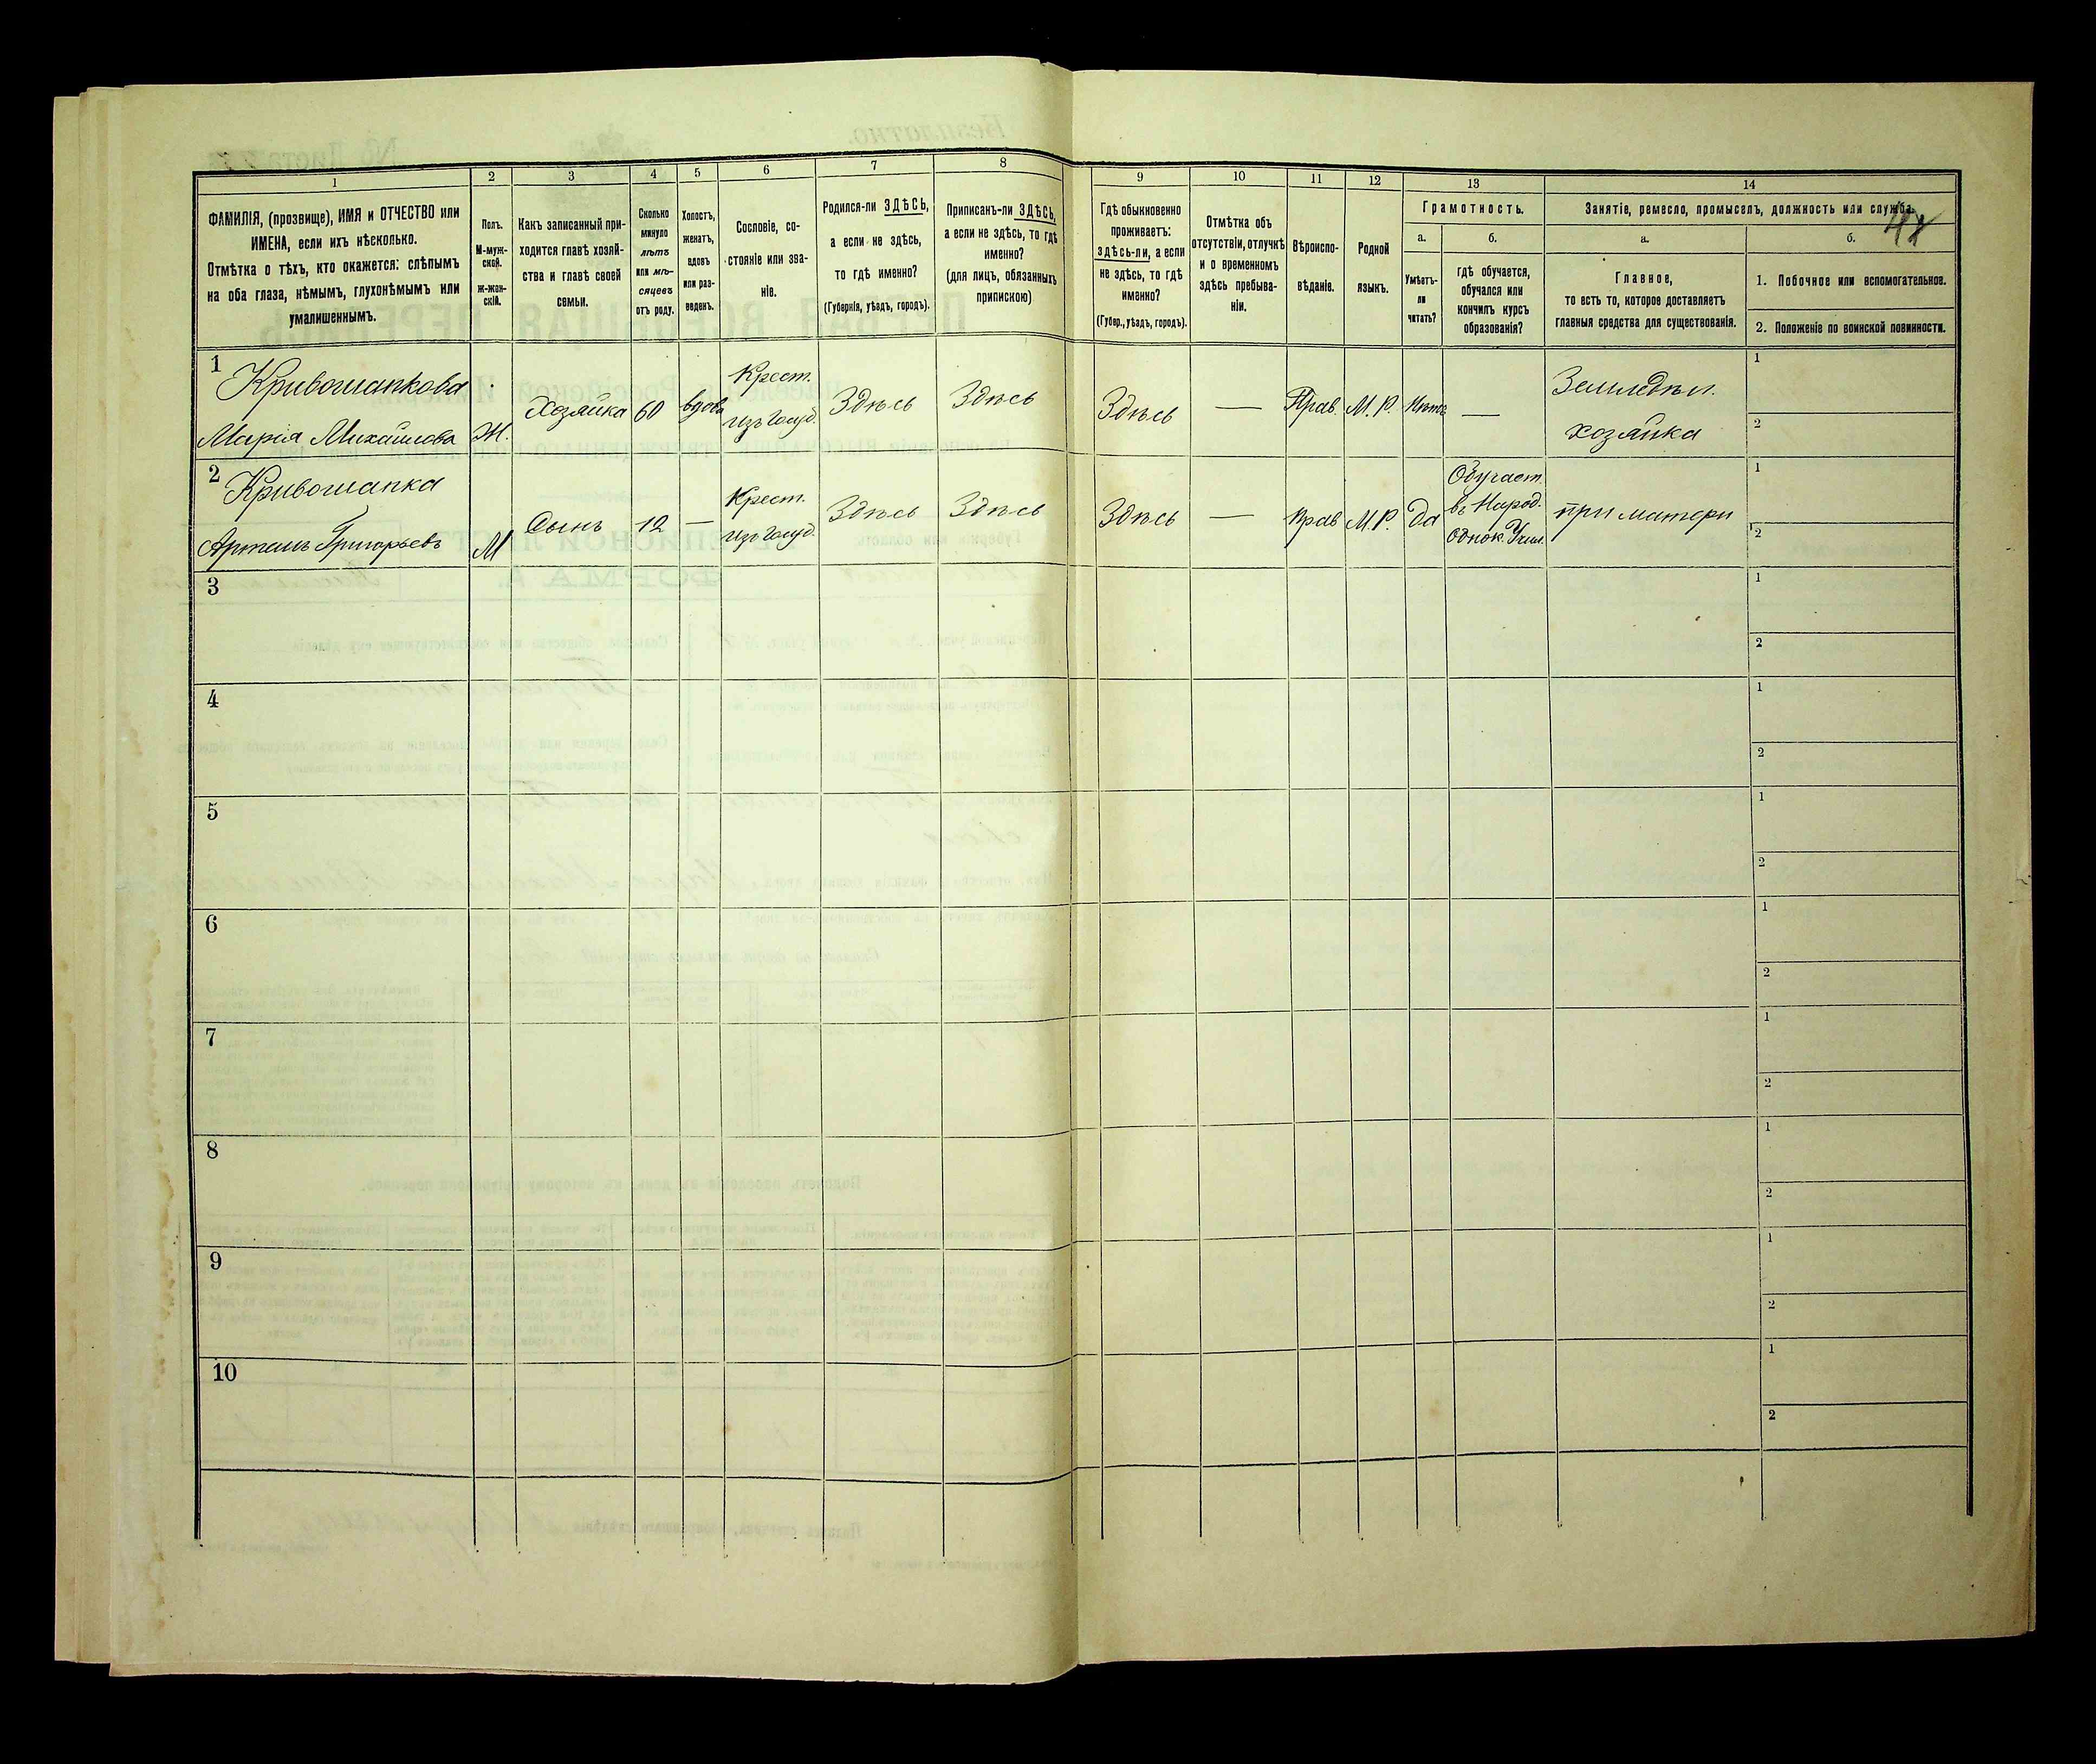 48
1
2
3
4
5
6
7
8
9
10
11
12
13
14
ФАМИЛІЯ, (прозвище), ИМЯ и ОТЧЕСТВО или
ИМЕНА, если ихъ нѣсколько.
Отмѣтка о тѣхъ, кто окажется: слѣпымъ
на оба глаза, нѣмымъ, глухонѣмымъ или
умалишеннымъ.
Полъ.
М-муж-
ской.
ж-жен-
скій.
Какъ записанный при-
ходится главѣ хозяй-
ства и главѣ своей
семьи.
Сколько
минуло
лѣтъ
или мѣ-
сяцевъ
отъ роду.
Холостъ,
женатъ,
вдовъ
или раз-
веденъ.
Сословіе, со-
стояніе или зва-
ніе.
Родился-ли ЗДѢСЬ,
а если не здѣсь,
то гдѣ именно?
(Губернія, уѣздъ, городъ).
Приписанъ-ли ЗДѢСЬ,
а если не здѣсь, то гдѣ
именно?
(для лицъ, обязанныхъ
припискою)
Гдѣ обыкновенно
проживаетъ:
ЗДѢСЬ-ли, а если
не здѣсь, то гдѣ
именно?
(Губер., уѣздъ, городъ).
Отмѣтка объ
отсутствіи, отлучкѣ
и о временномъ
здѣсь пребыва-
ніи.
Вѣроиспо-
вѣданіе.
Родной
языкъ.
Грамотность.
а.
Умѣетъ-
ли
читать?
б.
гдѣ обучается,
обучался или
кончилъ курсъ
образованія?
Занятіе, ремесло, промыселъ, должность или служба.
а.
Главное,
то есть то, которое доставляетъ
главныя средства для существованія.
б.
1. Побочное или вспомогательное.
2. Положеніе по воинской повинности.
1
Кривошапкова
Марія Михайлова
Ж.
Хозяйка
60
вдова
Крест.
изъ госуд.
Здѣсь
Здѣсь
Здѣсь
—
Прав.
М. Р.
Нѣтъ
—
Земледѣл.
хозяйка
1
2
2
Кривошапка
Артемъ Григорьевъ
М
Сынъ
12
—
Крест.
изъ госуд.
Здѣсь
Здѣсь
Здѣсь
—
Прав
М. Р.
Да
Обучает.
въ Народ.
Однок. Учил.
при матери
1
2
3
1
2
4
1
2
5
1
2
6
1
2
7
1
2
8
1
2
9
1
2
10
1
2